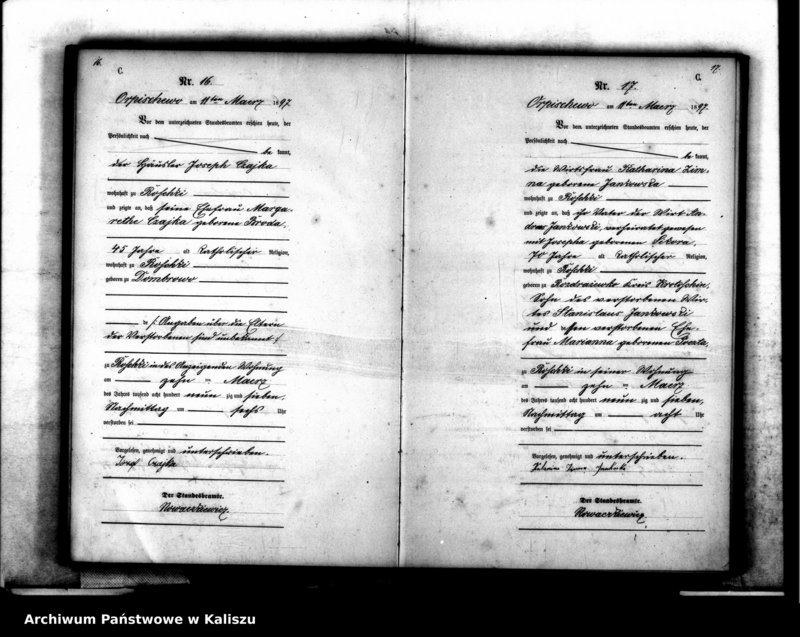 16.
C.
Nr. 16.
Orpischewo am 11ten Maerz 1897.
Vor dem unterzeichneten Standesbeamten erschien heute, der
Persönlichkeit nach
be kannt,
der Häusler Joseph Czajka
wohnhaft zu Roschki
und zeigte an, daß seine Ehefrau Marga-
rethe Czajka geborene Broda,
45 Jahre alt, katholischer Religion,
wohnhaft zu Roschki
geboren zu Dombrowo
Angaben über die Eltern
der Verstorbenen sind unbekannt
zu Roschki in des Anzeigenden Wohnung
am zehn ten Maerz
des Jahres tausend acht hundert neun zig und sieben,
Nachmittag um sechs Uhr
verstorben sei
Vorgelesen, genehmigt und unterschrieben.
Czajka
Der Standesbeamte.
Nowaczkiewicz.
17.
C.
Nr. 17.
Orpischewo am 11ten Maerz 1897.
Vor dem unterzeichneten Standesbeamten erschien heute, der
Persönlichkeit nach
be kannt,
die Wirtsfrau Katharina Zim-
na geborene Jankowska
wohnhaft zu Roschki
und zeigte an, daß ihr Vater der Wirt An-
dreas Jankowski, verheiratet gewesen
mit Josepha geborenen Sikora,
70 Jahre alt, katholischer Religion,
wohnhaft zu Roschki
geboren zu Rozdrazewko Kreis Krotoschin,
Sohn des verstorbenen Wir-
tes Stanislaus Jankowski
und dessen verstorbenen Ehe-
frau Marianna geborenen
zu Roschki in seiner Wohnung
am zehn ten Maerz
des Jahres tausend acht hundert neun zig und sieben,
Nachmittag um acht Uhr
verstorben sei
Vorgelesen, genehmigt und unterschrieben.
Der Standesbeamte.
Nowaczkiewicz.
Archiwum Państwowe w Kaliszu